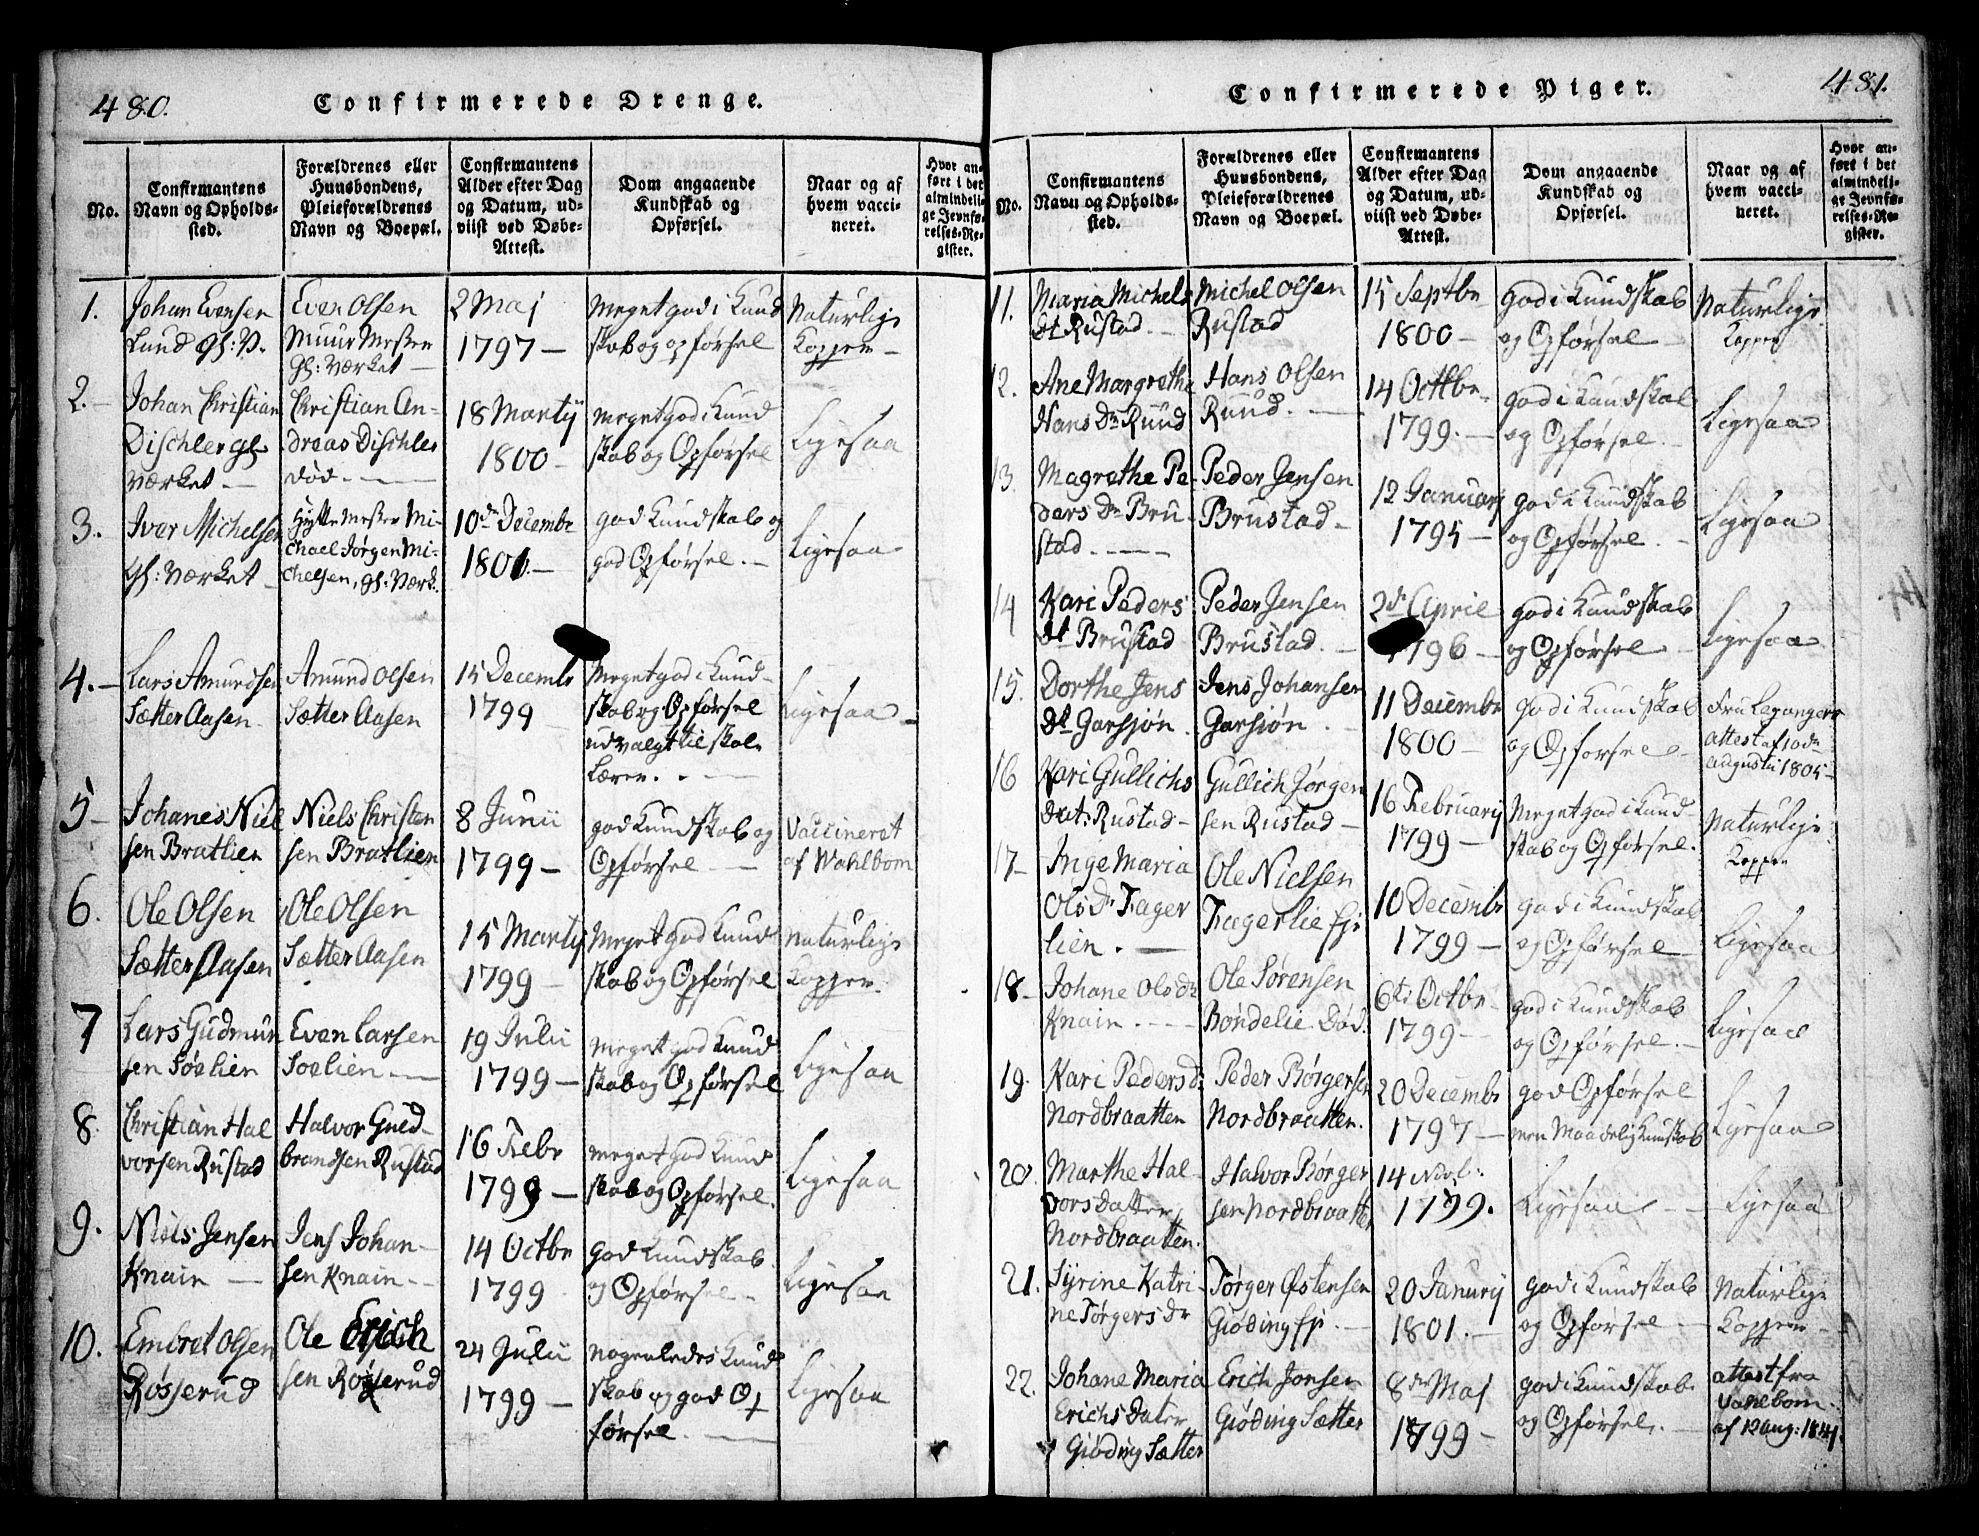 480.
Confirmerede Drenge.
No.
Confirmantens
Navn og Opholds-
sted.
Forældrenes eller
Huusbondens,
Pleieforældrenes
Navn og Boepæl.
Confirmantens
Alder efter Dag
og Datum, ud-
viist ved Døbe-
Attest.
Dom angaaende
Kundskab og
Opførsel.
Naar og af
hvem vacci-
neret.
Hvor an-
ført i det
almindeli-
ge Jevnfø-
relses-Re-
gister.
1.
Johan Evensen
Lund Gl: V.
Even Olsen
Muur Mester
Gl: Værket
2 Maj
1797
Meget god i Kund
skab og opførsel
Naturlige
Kopper
2.
Johan Christian
Dischler Gl.
Værket
Christian An-
dreas Dischler
død.
18 Martij
1800
Meget god i Kund
skab og Opførsel
Ligesaa
3.
Iver Michelsen
Gl: Værket
Hytte Mester Mi-
chael Jørgen Mi-
chelsen, Gl: Værk.
10de Decembr
1801.
god Kundskab og
god Opførsel.
Ligesaa
4.
Lars Amundsen
Sætter Aasen
Amund Olsen
Sætter Aasen
15 Decembr
1799
Meget god i Kund-
skab og Opførsel
udvalgt til skole
Lærer.
Ligesaa
5
Johanes Niel
sen Bratlien
Niels Christen
sen Bratlien
8 Junii
1799
god Kundskab og
Opførsel
Vaccineret
af Wahlbom
6.
Ole Olsen
Sætter Aasen
Ole Olsen
Sætter Aasen
15 Martij
1799
Meget god Kund
skab og Opførsel
Naturlige
Kopper.
7
Lars Gudmun
sen Søelien
Even Larsen
Soelien
19 Julii
1799
Meget god Kund
skab og Opførsel
Ligesaa
8.
Christian Hal
vorsen Rustad
Halvor Gued-
brandsen Rustad
16 Febr
1799
Meget god Kund
skab og Opførsel.
Ligesaa
9.
Niels Jensen
Knain
Jens Johan-
sen Knain
14 Octbr
1799
god Kundskab
og Opførsel
Ligesaa
10.
Embret Olsen
Røsserud
Ole Erich
sen Røsserud
24 Julii
1799
Nogenledes Kund
skab og god Op
førsel
Ligesaa
481.
Confirmerede Piger.
No.
Confirmantens
Navn og Opholds-
sted.
Forældrenes eller
Huusbondens,
Pleieforældrenes
Navn og Boepæl.
Confirmantens
Alder efter Dag
og Datum, ud-
viist ved Døbe-
Attest.
Dom angaaende
Kundskab og
Opførsel.
Naar og af
hvem vacci-
neret.
Hvor an-
ført i det
almindeli-
ge Jevnfø-
relses-Re-
gister.
11.
Maria Michels
dt Rustad
Michel Olsen
Rustad
15 Septbr
1800
god i Kundskab
og Opførsel
Naturlige
Kopper
12.
Ane Margretha
Hans Dr Ruud
Hans Olsen
Ruud.
14 Octbr
1799.
god i Kundskab
og Opførsel.
Ligesaa
13.
Magrethe Pe-
ders Dr Bru-
stad
Peder Jensen
Brustad
12 Januarj
1795
god i Kundskab
og Opførsel.
Ligesaa
14
Kari Peders
dt Brustad
Peder Jensen
Brustad.
2de April
1796
god i Kundskab
og Opførsel
Ligesaa
15.
Dorthe Jens
dt Garsjøn
Jens Johansen
Garsjøn
11 Decembr
1800
god i Kundskab
og Opførsel
Fru Legangers
attest af 10de
Augustii 1805
16
Kari Gullichs
dat: Rustad
Gullich Jørgen
sen Rustad
16 Februarij
1799
Meget god i Kund-
skab og Opførsel.
Naturlige
Kopper
17
Inge Maria
Ols Dr Fager
lien.
Ole Nielsen
Fagerlie Ejr
10 Decembr
1799
god i Kundskab
og Opførsel
Ligesaa
18
Johane Ols dr
Knain
Ole Sørensen
Bøndelie Død.
6te Octbr
1799
god i Kundskab
og Opførsel.
Ligesaa
19.
Kari Peders d:
Nordbraatten
Peder Børgersen
Nordbraatten.
20 Decembr
1797
god Opførsel
men Maadelig Kundskab
Ligesaa
20.
Marthe Hal-
vors Datter
Nordbraatten.
Halvor Børger
sen Nordbraatten
14 Novb:
1799.
Ligesaa
Ligesaa
21.
Syrine Katri-
ne Tørgers dr
Tørger Østensen
Giøding Ejr
20 Januarij
1801.
god i Kundskab
og Opførsel
Naturlige
Kopper
22.
Johane Maria
Erichs Dater
Giøding Sætter
Erich Jonsen
Giøding Sætter
8de Maj
1799
god i Kundskab
og Opførsel.
attest fra
Vahlbom
af 12 aug: 1841.